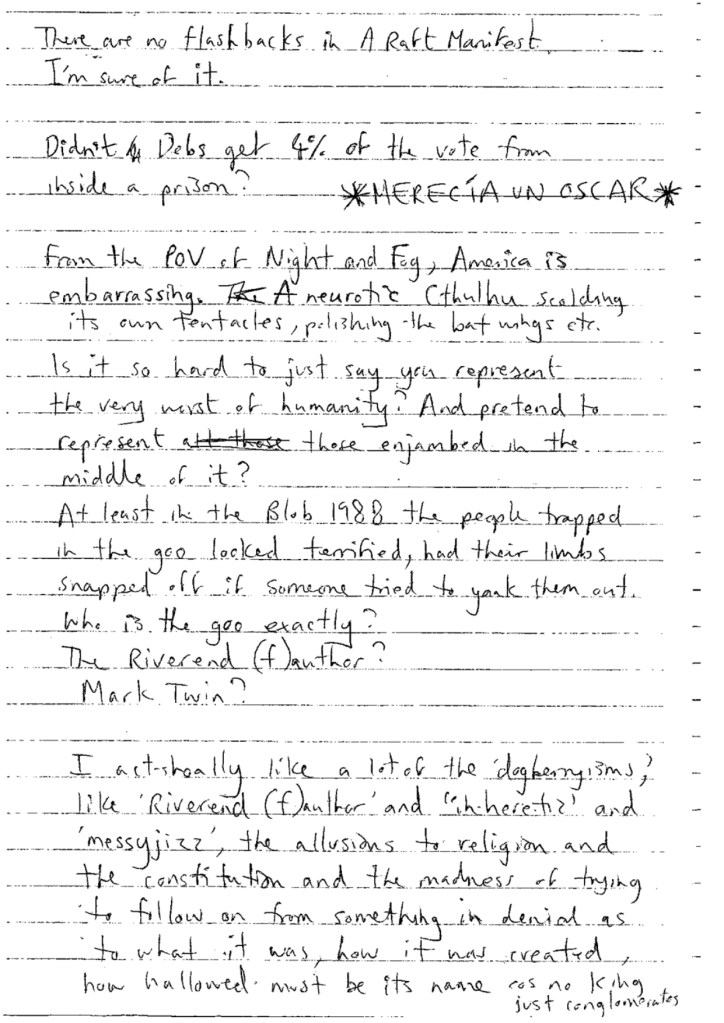 There are no flashbacks in A Raft Manifest.
I'm sure of it.
Didn't Debs get 4% of the vote from
inside a prison? *MERECÍA UN OSCAR*
From the POV of Night and Fog, America is
embarrassing. The A neurotic Cthulhu scolding
its own tentacles, polishing the bat wings etc.
Is it so hard to just say you represent
the very worst of humanity? And pretend to
represent all those those enjambed in the
middle of it?
At least in the Blob 1988 the people trapped
in the goo looked terrified, had their limbs
snapped off if someone tried to yank them out.
Who is the goo exactly?
The Riverend (f)author?
Mark Twin?
I act-shoally like a lot of the 'dogberryisms,'
like 'Riverend (f)author' and 'inheretiz' and
'messyjizz', the allusions to religion and
the constitution and the madness of trying
to follow on from something in denial as
to what it was, how it was created,
how hallowed must be its name cos no king
just conglomerates